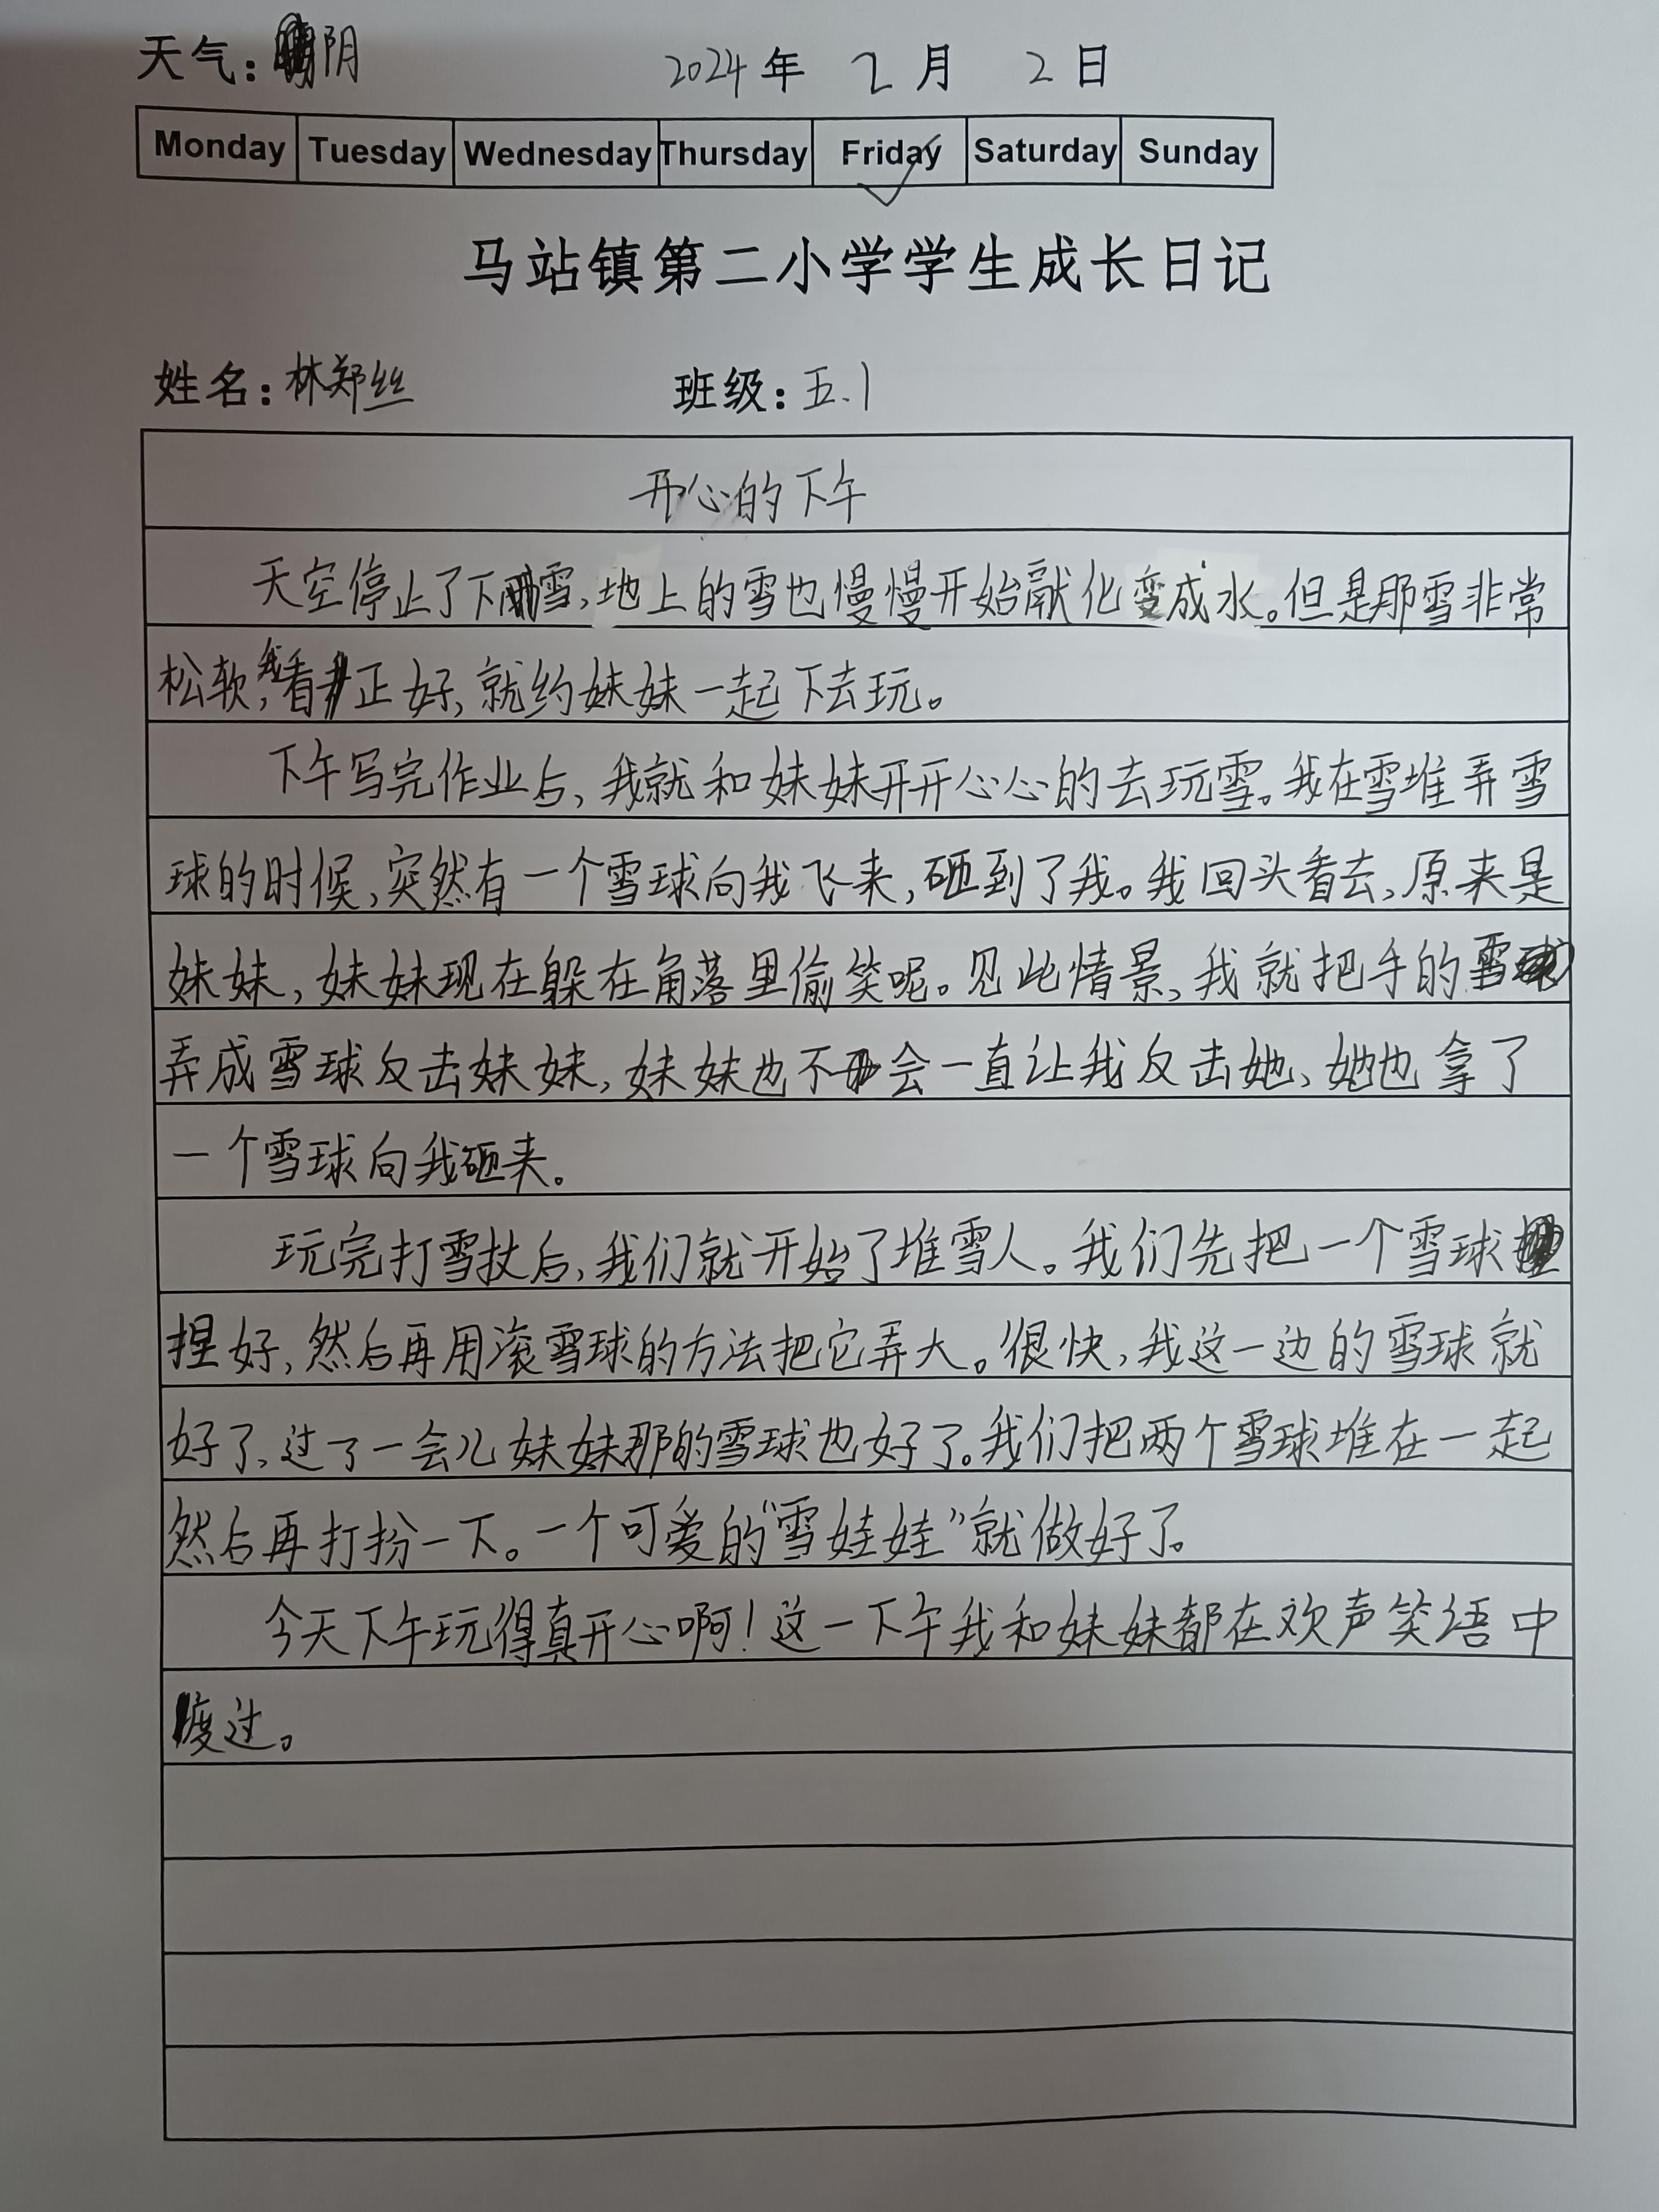 天气：阴 2024年 2月 2日
Monday Tuesday Wednesday Thursday Friday Saturday Sunday
马站镇第二小学学生成长日记
姓名：林郑丝 班级：五.1
开心的下午
天空停止了下雪，地上的雪也慢慢开始融化变成水。但是那雪非常
松软，我看正好，就约妹妹一起下去玩。
下午写完作业后，我就和妹妹开开心心的去玩雪。我在雪堆弄雪
球的时候，突然有一个雪球向我飞来，砸到了我。我回头看去，原来是
妹妹，妹妹现在躲在角落里偷笑呢。见此情景，我就把手的雪
弄成雪球反击妹妹，妹妹也不会一直让我反击她、她也拿了
一个雪球向我砸来。
玩完打雪仗后，我们就开始了堆雪人。我们先把一个雪球
捏好，然后再用滚雪球的方法把它弄大。很快，我这一边的雪球就
好了、过了一会儿妹妹那的雪球也好了。我们把两个雪球堆在一起
然后再打扮一下。一个可爱的“雪娃娃”就做好了。
今天下午玩得真开心啊！这一下午我和妹妹都在欢声笑语中
度过。